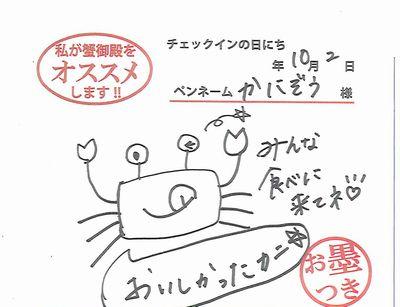 私が蟹御殿を
オススメ
します!!
チェックインの日にち
年10月2日
ペンネーム かにぞう 様
みんな
食べに
来てネ♡
おいしかったカニ☆
お墨
つき